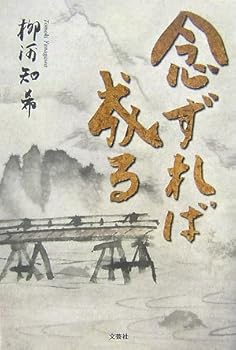 念ずれば
成る
Tomoki Yanagawa
柳河知希
文芸社